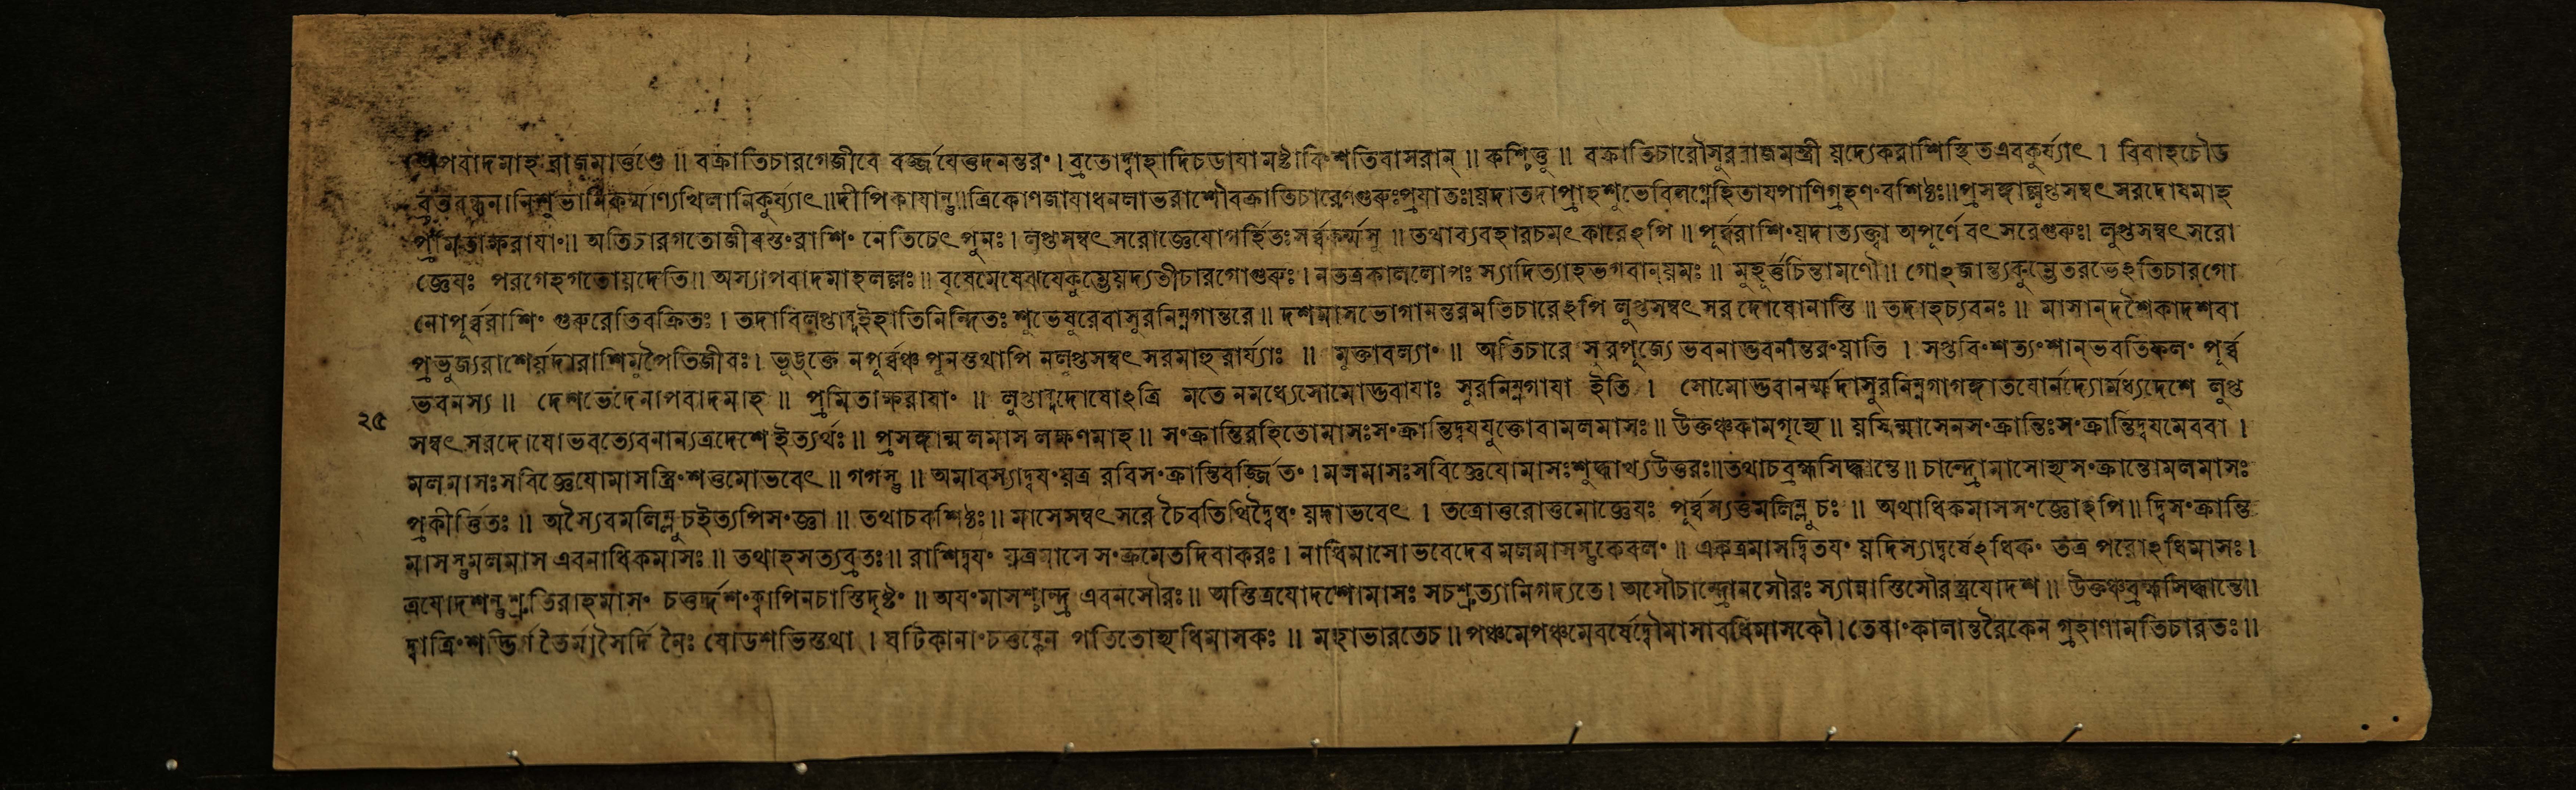 অপবাদমাহ রাজমার্ত্তণ্ডে ॥ বক্রাতিচারগেজীবে বর্জ্জযেত্তদনন্তরং । ব্রতোদ্বাহাদিচডাযামষ্টাবিংশতিবাসরান্ ॥ কশ্চিত্তু ॥ বক্রাতিচারৌসুররাজমন্ত্রী য়দ্যেকরাশিস্থিতএবকুর্য্যাৎ । বিবাহচৌড
ব্রতবন্ধনানিশুভানিকর্ম্মাণ্যখিলানিকুর্য্যাৎ ॥ দীপিকাযান্তু ॥ ত্রিকোণজাযাধনলাভরাশৌবক্রাতিচারেণগুরুঃপ্রযাতঃ।য়দাতদাপ্রাহশুভেবিলগ্নেহিতাযপাণিগ্রহণংবশিষ্ঠঃ॥প্রসঙ্গাল্লুপ্তসম্বৎসরদোষমাহ
প্রমিতাক্ষরাযাং॥ অতিচারগতোজীবস্তংরাশিং নেতিচেৎপুনঃ । লুপ্তসম্বৎসরোজ্ঞেযোগর্হিতঃসর্ব্বকর্ম্মসু ॥ তথাব্যবহারচমৎকারেঽপি ॥ পূর্ব্বরাশিংয়দাত্যক্ত্বা অপূর্ণেবৎসরেগুরুঃ। লুপ্তসম্বৎসরো
জ্ঞেযঃ পরগেহগতোয়দেতি॥ অস্যাপবাদমাহলল্লঃ॥ বৃষেমেষেঝষেকুম্ভেয়দ্যতীচারগোগুরুঃ । নতত্রকাললোপঃ স্যাদিত্যাহভগবান্য়মঃ ॥ মুহূর্ত্তচিন্তামণৌ॥ গোঽজান্ত্যকুম্ভেতরভেঽতিচারগো
নোপূর্ব্বরাশিং গুরুরেতিবক্রিতঃ । তদাবিলুপ্তাব্দইহাতিনিন্দিতঃ শুভেষুরেবাসুরনিম্নগান্তরে ॥ দশমাসভোগানন্তরমতিচারেঽপি লুপ্তসম্বৎসরদোষোনাস্তি ॥ তদাহচ্যবনঃ ॥ মাসান্দশৈকাদশবা
প্রভুজ্যরাশের্য়দারাশিমুপৈতিজীবঃ । ভুঙ্ক্তে নপূর্ব্বঞ্চ পুনস্তথাপি নলুপ্তসম্বৎসরমাহুরার্য্যাঃ ॥ মুক্তাবল্যাং ॥ অতিচারে সুরপূজ্যে ভবনাদ্ভবনান্তরংয়াতি । সপ্তবিংশত্যংশান্ভবতিফলং পূর্ব্ব
ভবনস্য ॥ দেশভেদেনাপবাদমাহ ॥ প্রমিতাক্ষরাযাং ॥ লুপ্তাব্দদোষোঽত্রি মতে নমধ্যেসোমোদ্ভবাযাঃ সুরনিম্নগাযা ইতি । সোমোদ্ভবানর্ম্মদাসুরনিম্নগাগঙ্গাতযোর্নদ্যোর্মধ্যদেশে লুপ্ত
২৫
সম্বৎসরদোষোভবত্যেবনান্যত্রদেশেইত্যর্থঃ ॥ প্রসঙ্গান্মলমাসলক্ষণমাহ ॥ সংক্রান্তিরহিতোমাসঃসংক্রান্তিদ্বযযুক্তোবামলমাসঃ ॥ উক্তঞ্চকামগৃহ্যে ॥ য়স্মিন্মাসেনসংক্রান্তিঃসংক্রান্তিদ্বযমেববা ।
মলমাসঃসবিজ্ঞেযোমাসস্ত্রিংশত্তমোভবেৎ ॥ গর্গস্তু ॥ অমাবস্যাদ্বযংয়ত্র রবিসংক্রান্তিবর্জ্জিতং । মলমাসঃসবিজ্ঞেযোমাসঃশুদ্ধাখ্যউত্তরঃ॥তথাচব্রহ্মসিদ্ধান্তে ॥ চান্দ্রোমাসোহ্যসংক্রান্তোমলমাসঃ
প্রকীর্ত্তিতঃ ॥ অস্যৈবমলিম্লুচইত্যপিসংজ্ঞা ॥ তথাচবশিষ্ঠঃ ॥ মাসেসম্বৎসরে চৈবতিথিদ্বৈধং য়দাভবেৎ । তত্রোত্তরোত্তমোজ্ঞেযঃ পূর্ব্বস্যত্তমলিম্লুচঃ ॥ অথাধিকমাসসংজ্ঞোঽপি॥ দ্বিসংক্রান্তি
মাসস্তুমলমাস এবনাধিকমাসঃ ॥ তথাহসত্যব্রতঃ॥ রাশিদ্বযং য়ত্রমাসে সংক্রমেতদিবাকরঃ । নাধিমাসোভবেদেবমলমাসস্তুকেবলং ॥ একত্রমাসদ্বিতযং য়দিস্যাদ্বর্ষেঽধিকং তত্র পরোঽধিমাসঃ ।
ত্রযোদশন্তুশ্রুতিরাহমাসং চতুর্দ্দশংক্বাপিনচাস্তিদৃষ্টং ॥ অযংমাসশ্চান্দ্র এবনসৌরঃ ॥ অস্তিত্রযোদশোমাসঃ সচশ্রুত্যানিগদ্যতে । অসৌচান্দ্রোনসৌরঃ স্যান্নাস্তিসৌরস্ত্রযোদশ ॥ উক্তঞ্চব্রহ্মসিদ্ধান্তে॥
দ্বাত্রিংশদ্ভির্গতৈর্মাসৈর্দিনৈঃ ষোডশভিস্তথা । ঘটিকানাংচতুষ্কেন পতিতোহ্যধিমাসকঃ ॥ মহাভারতেচ ॥ পঞ্চমেপঞ্চমেবর্ষেদ্বৌমাসাবধিমাসকৌ । তেষাংকালান্তরৈকেন গ্রহাণামতিচারতঃ॥